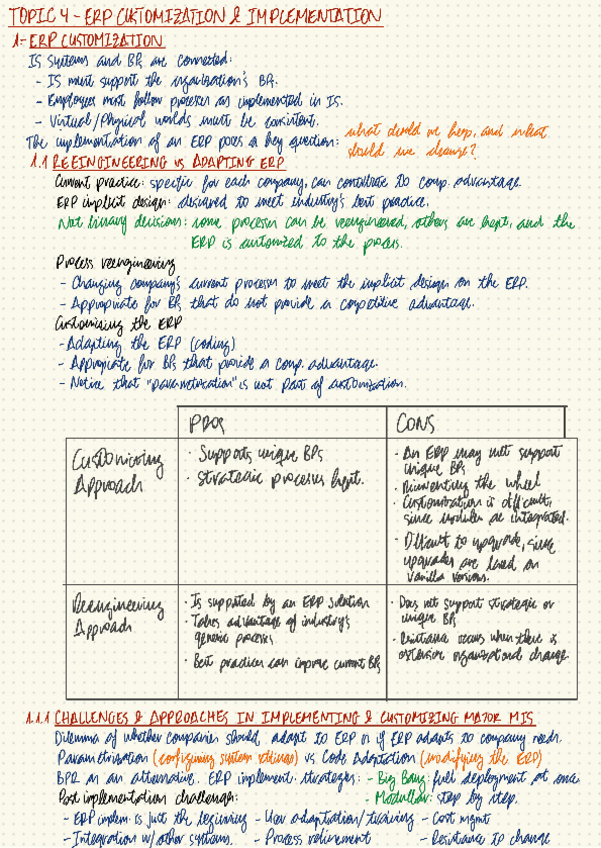 TOPIC 4 - ERP CUSTOMIZATION & IMPLEMENTATION
1.- ERP CUSTOMIZATION
IS systems and BPs are connected:
- IS must support the organisation's BPs.
- Employees must follow processes as implemented in IS.
- Virtual/Physical worlds must be consistent.
The implementation of an ERP poses a key question: what should we keep, and what
should we change?
1.1 REENGINEERING vs ADAPTING ERP
Current practice: specific for each company, can contribute to comp. advantage.
ERP implicit design: designed to meet industry's best practice.
Not binary decisions: some processes can be reengineered, others are kept, and the
ERP is customized to the process.
Process reengineering
- Changing company's current processes to meet the implicit design on the ERP.
- Appropriate for BPs that do not provide a competitive advantage.
Customising the ERP
- Adapting the ERP (coding)
- Appropriate for BPs that provide a comp. advantage.
- Notice that "parametrization" is not part of customization.
PROS
CONS
Customising
Approach
· Supports unique BPs
· Strategic processes kept.
· An ERP may not support
unique BPs
· Reinventing the wheel
· Customization is difficult,
since modules are integrated.
· Difficult to upgrade, since
upgrades are based on
vanilla versions.
Reengineering
Approach
· Is supported by an ERP solution
· Takes advantage of industry's
generic processes
· Best practices can improve current BPs
· Does not support strategic or
unique BPs
· Resistance occurs when there is
extensive organizational change
1.1.1 CHALLENGES & APPROACHES IN IMPLEMENTING & CUSTOMIZING MAJOR MIS
Dilemma of whether companies should adapt to ERP or if ERP adapts to company needs.
Parametrisation (configuring system settings) vs Code Adaptation (modifying the ERP)
BPR as an alternative. ERP implement. strategies: - Big Bang: full deployment at once
- Modullar: step by step.
Post implementation challenges:
- ERP implem. is just the beginning - User adaptation/training - Cost mgmt
- Integration w/other systems. - Process refinement - Resistance to change